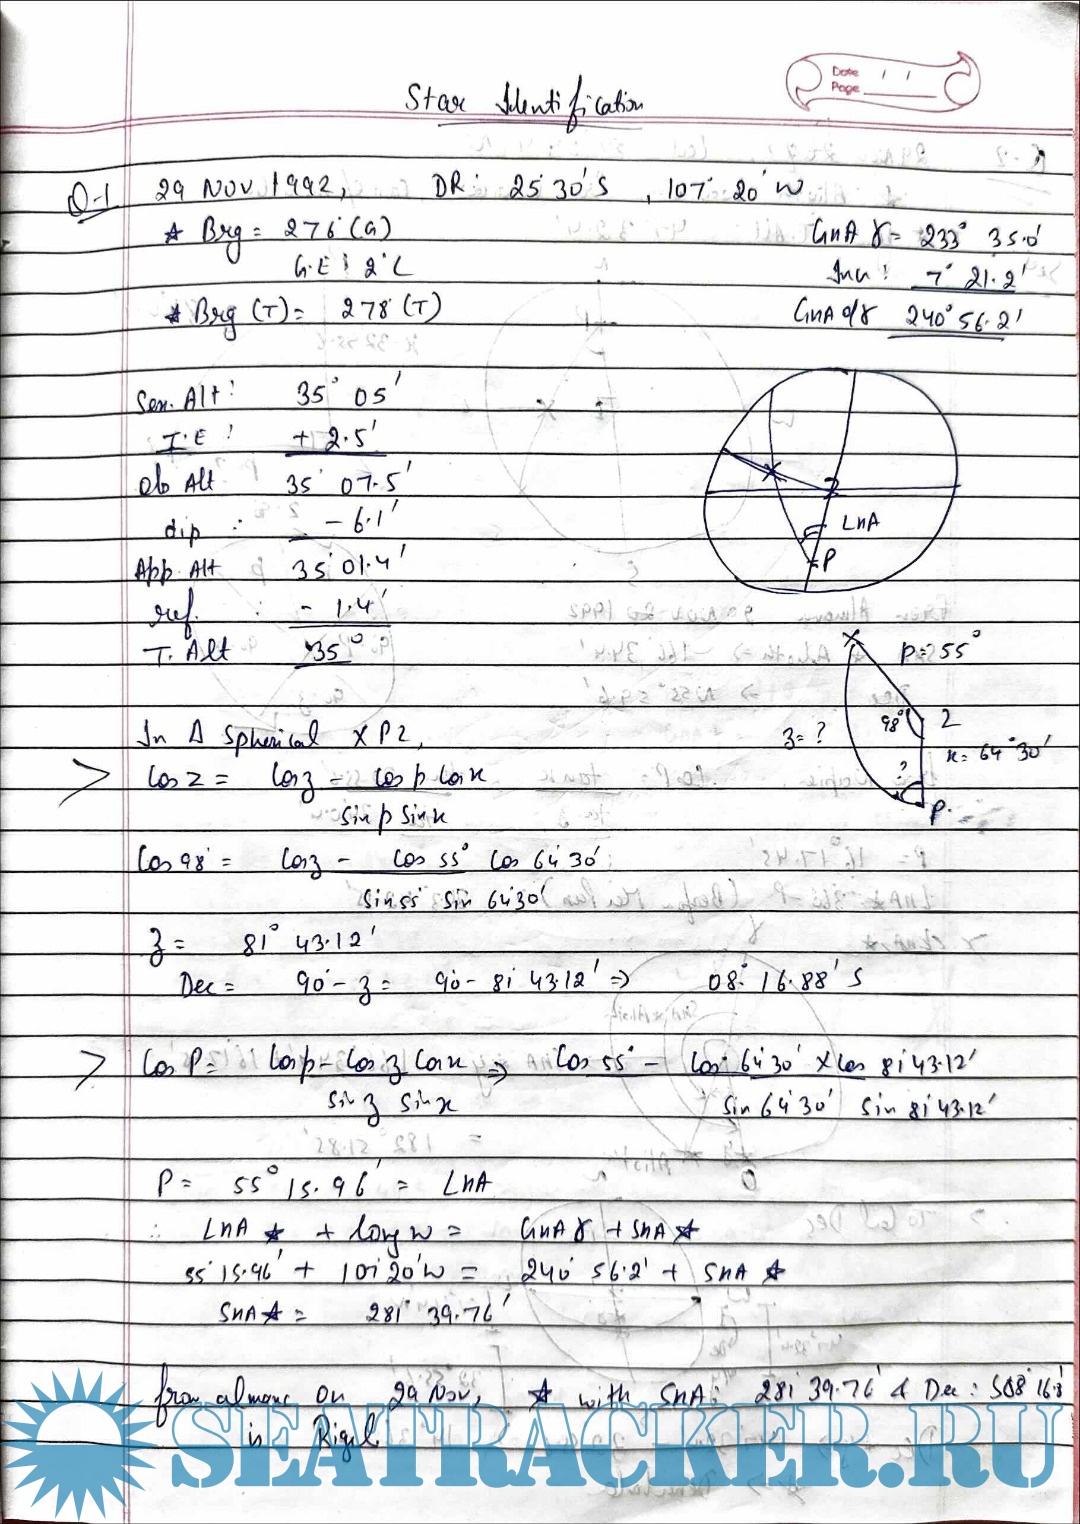 Date / /
Page
Star Identification
Q-1 29 NOV 1992, DR: 25°30'S, 107° 20' W
☆ Brg = 276°(G)
G.E: 2°L
☆ Brg (T) = 278°(T)
GHA γ = 233° 35.0'
Incr: 7° 21.2'
GHA of γ 240° 56.2'
Sex. Alt: 35° 05'
I.E: + 2.5'
Ob Alt 35° 07.5'
dip : - 6.1'
App. Alt 35° 01.4'
ref. : - 1.4'
T. Alt 35°
LHA
P
X
p = 55°
98° Z
z = ?
x = 64° 30'
?
P
In Δ Spherical XPZ,
> Cos Z = Cos z - Cos p Cos x
Sin p Sin x
Cos 98° = Cos z - Cos 55° Cos 64°30'
Sin 55° Sin 64°30'
z = 81° 43.12'
Dec = 90° - z = 90° - 81° 43.12' ⇒ 08° 16.88' S
> Cos P = Cos p - Cos z Cos x ⇒ Cos 55° - Cos 64°30' x Cos 81°43.12'
Sin z Sin x Sin 64°30' Sin 81°43.12'
P = 55° 15.96' = LHA
∴ LHA ☆ + long W = GHA γ + SHA ☆
55° 15.96' + 107° 20' W = 240° 56.2' + SHA ☆
SHA ☆ = 281° 39.76'
from almanc on 29 Nov, ☆ with SHA: 281° 39.76' & Dec: S08° 16.8'
is Rigel
SEATRACKER.RU